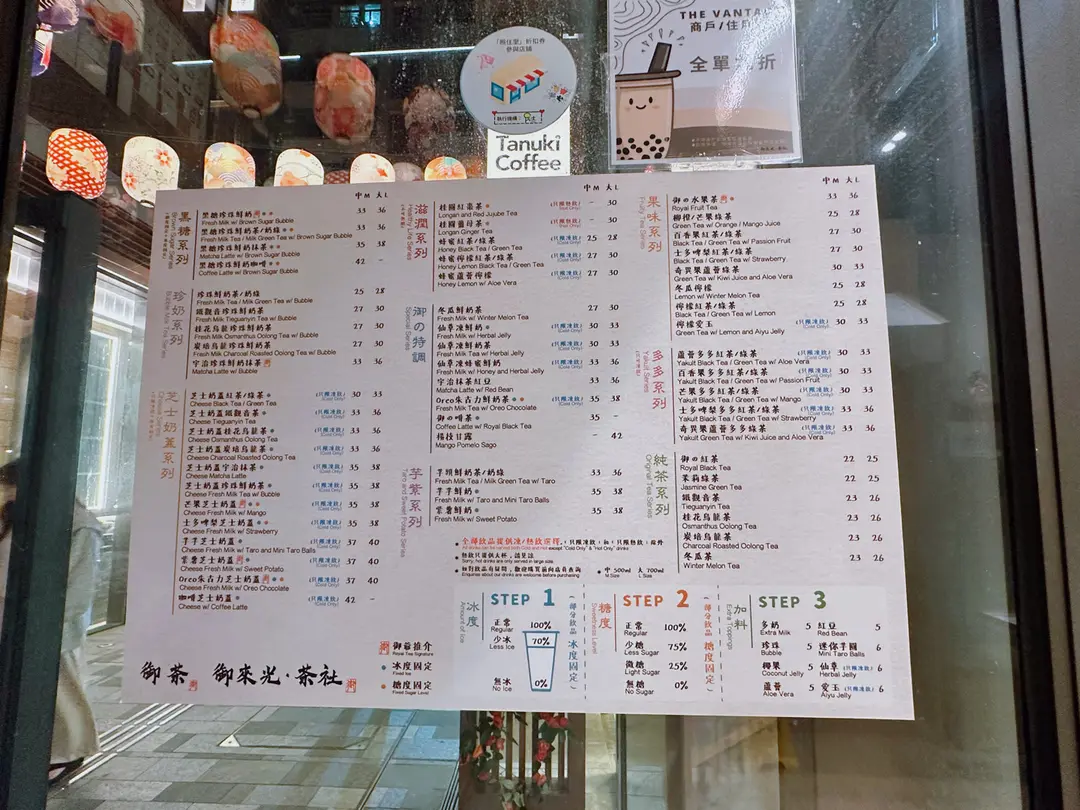 THE VANTA
商戶/住戶
全單九折
「兩住里」折扣券
參與店舖
Tanuki
Coffee
中M 大L
黑糖系列
Brown Sugar Series
黑糖珍珠鮮奶 33 36
Fresh Milk w/ Brown Sugar Bubble
黑糖珍珠鮮奶茶/奶綠 33 36
Fresh Milk Tea / Milk Green Tea w/ Brown Sugar Bubble
黑糖珍珠鮮奶抹茶 35 38
Matcha Latte w/ Brown Sugar Bubble
黑糖珍珠鮮奶咖啡 42 -
Coffee Latte w/ Brown Sugar Bubble
珍奶系列
Bubble Milk Tea Series
珍珠鮮奶茶/奶綠 25 28
Fresh Milk Tea / Milk Green Tea w/ Bubble
鐵觀音珍珠鮮奶茶 27 30
Fresh Milk Tieguanyin Tea w/ Bubble
桂花烏龍珍珠鮮奶茶 27 30
Fresh Milk Osmanthus Oolong Tea w/ Bubble
炭焙烏龍珍珠鮮奶茶 27 30
Fresh Milk Charcoal Roasted Oolong Tea w/ Bubble
宇治珍珠鮮奶抹茶 33 36
Matcha Latte w/ Bubble
芝士奶蓋系列
Cheese Series
芝士奶蓋紅茶/綠茶 (只限凍飲) 30 33
Cheese Black Tea / Green Tea (Cold Only)
芝士奶蓋鐵觀音 (只限凍飲) 33 36
Cheese Tieguanyin Tea (Cold Only)
芝士奶蓋桂花烏龍茶 (只限凍飲) 33 36
Cheese Osmanthus Oolong Tea (Cold Only)
芝士奶蓋炭焙烏龍茶 (只限凍飲) 33 36
Cheese Charcoal Roasted Oolong Tea (Cold Only)
芝士奶蓋宇治抹茶 (只限凍飲) 35 38
Cheese Matcha Latte (Cold Only)
芝士奶蓋珍珠鮮奶茶 (只限凍飲) 35 38
Cheese Fresh Milk Tea w/ Bubble (Cold Only)
芒果芝士奶蓋 (只限凍飲) 35 38
Cheese Fresh Milk w/ Mango (Cold Only)
士多啤梨芝士奶蓋 (只限凍飲) 35 38
Cheese Fresh Milk w/ Strawberry (Cold Only)
芋芋芝士奶蓋 (只限凍飲) 37 40
Cheese Fresh Milk w/ Taro and Mini Taro Balls (Cold Only)
紫薯芝士奶蓋 (只限凍飲) 37 40
Cheese Fresh Milk w/ Sweet Potato (Cold Only)
Oreo朱古力芝士奶蓋 (只限凍飲) 37 40
Cheese Fresh Milk w/ Oreo Chocolate (Cold Only)
咖啡芝士奶蓋 (只限凍飲) 42 -
Cheese w/ Coffee Latte (Cold Only)
中M 大L
滋潤系列
Healthy Life Series
桂圓紅棗茶 (只限熱飲) - 30
Longan and Red Jujube Tea (Hot Only)
桂圓薑母茶 (只限熱飲) - 30
Longan Ginger Tea (Hot Only)
蜂蜜紅茶/綠茶 (只限凍飲) 25 28
Honey Black Tea / Green Tea (Cold Only)
蜂蜜檸檬紅茶/綠茶 (只限凍飲) 27 30
Honey Lemon Black Tea / Green Tea (Cold Only)
蜂蜜蘆薈檸檬 (只限凍飲) 27 30
Honey Lemon w/ Aloe Vera (Cold Only)
御の特調
Special Series
冬瓜鮮奶茶 27 30
Fresh Milk w/ Winter Melon Tea
仙草凍鮮奶 (只限凍飲) 30 33
Fresh Milk w/ Herbal Jelly (Cold Only)
仙草凍鮮奶茶 (只限凍飲) 30 33
Fresh Milk Tea w/ Herbal Jelly (Cold Only)
仙草凍蜂蜜鮮奶 (只限凍飲) 33 36
Fresh Milk w/ Honey and Herbal Jelly (Cold Only)
宇治抹茶紅豆 33 36
Matcha Latte w/ Red Bean
Oreo朱古力鮮奶茶 (只限凍飲) 35 38
Fresh Milk Tea w/ Oreo Chocolate (Cold Only)
御の啡茶 35 -
Coffee Latte w/ Royal Black Tea
楊枝甘露 - 42
Mango Pomelo Sago
芋紫系列
Taro and Sweet Potato Series
芋頭鮮奶茶/奶綠 33 36
Fresh Milk Tea / Milk Green Tea w/ Taro
芋芋鮮奶 35 38
Fresh Milk w/ Taro and Mini Taro Balls
紫薯鮮奶 35 38
Fresh Milk w/ Sweet Potato
中M 大L
果味系列
Fruity Tea Series
御の水果茶 33 36
Royal Fruit Tea
柳橙/芒果綠茶 25 28
Green Tea w/ Orange / Mango Juice
百香果紅茶/綠茶 27 30
Black Tea / Green Tea w/ Passion Fruit
士多啤梨紅茶/綠茶 27 30
Black Tea / Green Tea w/ Strawberry
奇異果蘆薈綠茶 30 33
Green Tea w/ Kiwi Juice and Aloe Vera
冬瓜檸檬 25 28
Lemon w/ Winter Melon Tea
檸檬紅茶/綠茶 25 28
Black Tea / Green Tea w/ Lemon
檸檬愛玉 (只限凍飲) 30 33
Green Tea w/ Lemon and Aiyu Jelly (Cold Only)
多多系列
Yakult Series
蘆薈多多紅茶/綠茶 (只限凍飲) 30 33
Yakult Black Tea / Green Tea w/ Aloe Vera (Cold Only)
百香果多多紅茶/綠茶 (只限凍飲) 30 33
Yakult Black Tea / Green Tea w/ Passion Fruit (Cold Only)
芒果多多紅茶/綠茶 (只限凍飲) 30 33
Yakult Black Tea / Green Tea w/ Mango (Cold Only)
士多啤梨多多紅茶/綠茶 (只限凍飲) 33 36
Yakult Black Tea / Green Tea w/ Strawberry (Cold Only)
奇異果蘆薈多多綠茶 (只限凍飲) 33 36
Yakult Green Tea w/ Kiwi Juice and Aloe Vera (Cold Only)
純茶系列
Original Tea Series
御の紅茶 22 25
Royal Black Tea
茉莉綠茶 22 25
Jasmine Green Tea
鐵觀音茶 23 26
Tieguanyin Tea
桂花烏龍茶 23 26
Osmanthus Oolong Tea
炭焙烏龍茶 23 26
Charcoal Roasted Oolong Tea
冬瓜茶 23 26
Winter Melon Tea
全部飲品提供凍/熱飲選擇,「只限凍飲」和「只限熱飲」除外
All drinks can be served both Cold and Hot except "Cold Only" & "Hot Only" drinks
熱飲只提供大杯,請見諒
Sorry, hot drinks are only served in large size
如對飲品有疑問,歡迎購買前向店員查詢
Enquiries about our drinks are welcome before purchasing
中 500ml 大 700ml
M Size L Size
御茶 御來光·茶社
御爺推介
Royal Tea Signature
冰度固定
Fixed Ice
糖度固定
Fixed Sugar Level
冰度
Amount of Ice
STEP 1
(部分飲品冰度固定)
正常 100%
Regular
少冰 70%
Less Ice
無冰 0%
No Ice
糖度
Sweetness Level
STEP 2
(部分飲品糖度固定)
正常 100%
Regular
少糖 75%
Less Sugar
微糖 25%
Light Sugar
無糖 0%
No Sugar
加料
Extra Toppings
STEP 3
多奶 5 紅豆 5
Extra Milk Red Bean
珍珠 5 迷你芋圓 6
Bubble Mini Taro Balls
椰果 5 仙草 (只限凍飲) 6
Coconut Jelly Herbal Jelly
蘆薈 5 愛玉 (只限凍飲) 6
Aloe Vera Aiyu Jelly